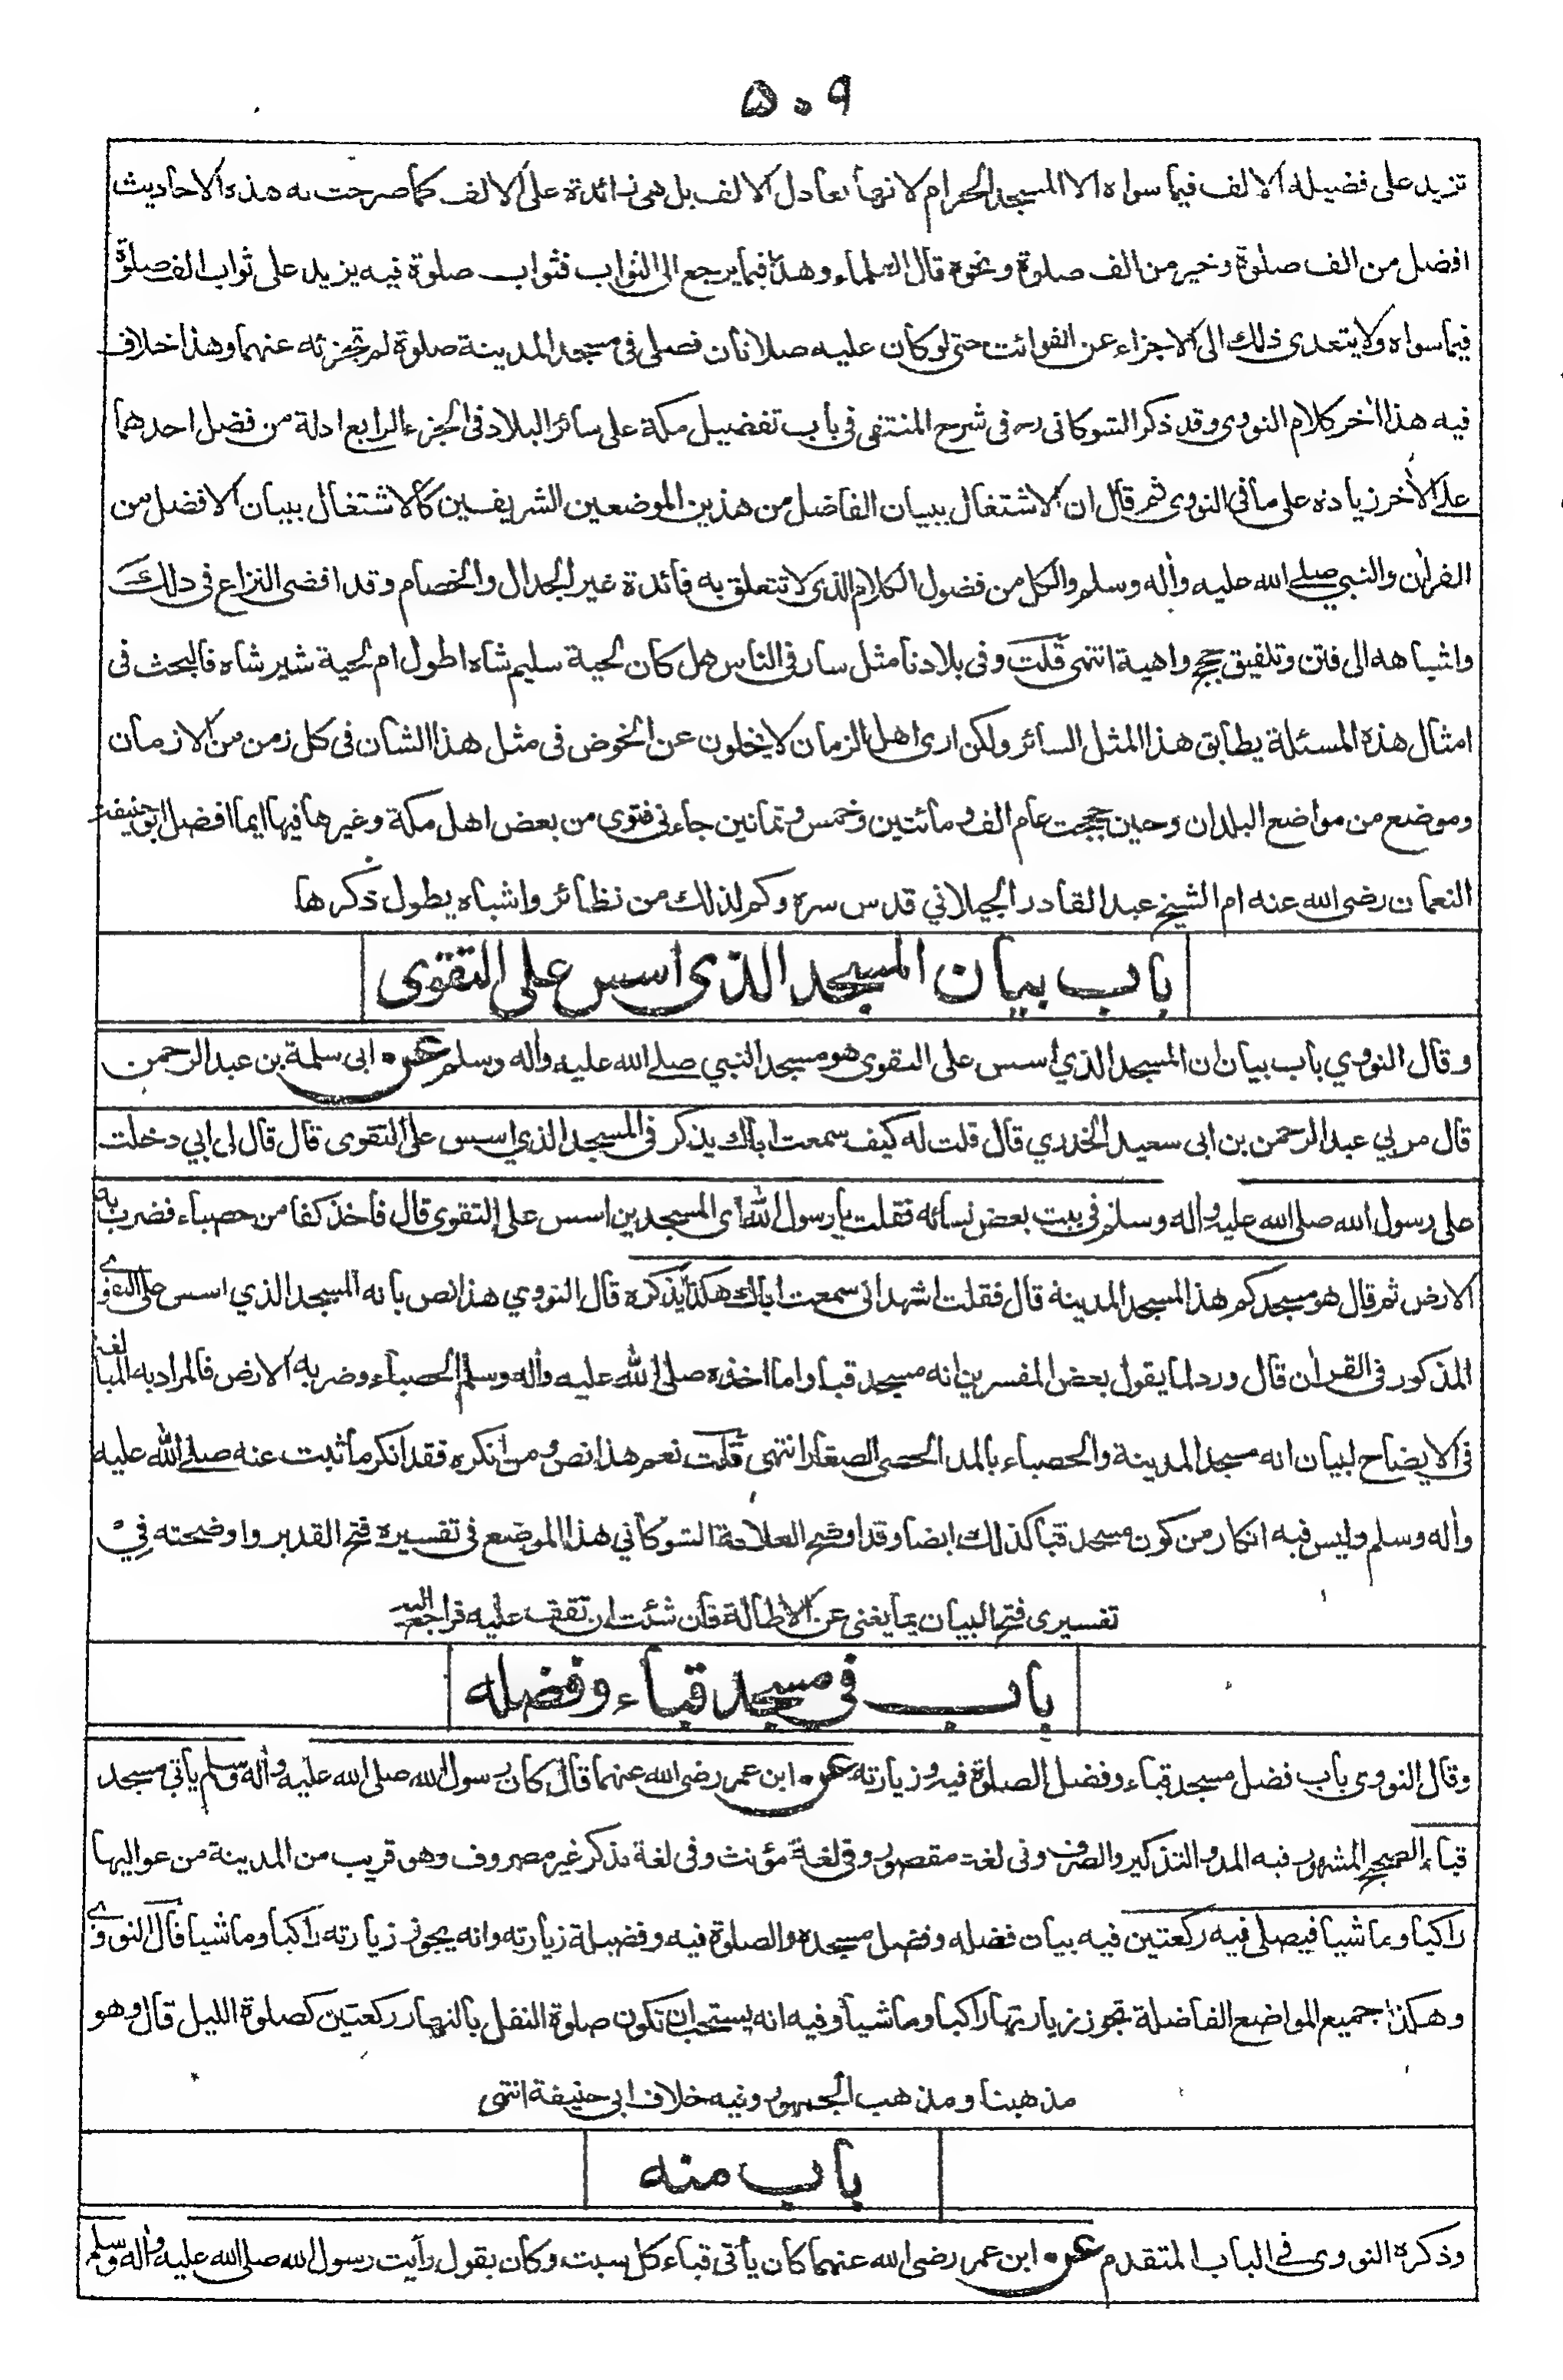 ٥٠٩
تزيد على فضيلة الالف فيما سواه الا المسجد الحرام لانها تعادل الالف بل هى زائدة على الالف كما صرحت به هذه الاحاديث
افضل من الف صلوة وخير من الف صلوة ونحوه قال العلماء وهذا فيما يرجع الى الثواب فثواب صلوة فيه يزيد على ثواب الف صلوة
فيما سواه ولا يتعدى ذلك الى الاجزاء عن الفوائت حتى لو كان عليه صلاتان فصلى فى مسجد المدينة صلوة لم تجزئه عنهما وهذا خلاف
فيه هذا اٰخر كلام النووى وقد ذكر الشوكانى ره فى شرح المنتقى فى باب تفضيل مكة على سائر البلاد فى الجزء الرابع ادلة من فضل احدهما
على الاٰخر زيادة على ما فى النووى ثم قال ان الاشتغال ببيان الفاضل من هذين الموضعين الشريفين كالاشتغال ببيان الافضل من
القراٰن والنبي صلى الله عليه واٰله وسلم والكل من فضول الكلام الذى لا تتعلق به فائدة غير الجدال والخصام وقد افضى النزاع فى ذلك
واشباهه الى فتن وتلفيق حجج واهية انتهى قلت وفى بلادنا مثل سار فى الناس هل كان لحية سليم شاه اطول ام لحية شير شاه فالبحث فى
امثال هذه المسئلة يطابق هذا المثل السائر ولكن ارى اهل الزمان لا يخلون عن الخوض فى مثل هذا الشان فى كل زمن من الازمان
وموضع من مواضع البلدان وحين حججت عام الف ومائتين وخمس وثمانين جاءنى فتوى من بعض اهل مكة وغيرها فيها ايما افضل ابو حنيفة
النعمان رضى الله عنه ام الشيخ عبد القادر الجيلاني قدس سره وكم لذلك من نظائر واشباه يطول ذكرها
باب بيان المسجد الذى اسس على التقوى
وقال النووي باب بيان ان المسجد الذي اسس على التقوى هو مسجد النبي صلى الله عليه واٰله وسلم عن ابى سلمة بن عبد الرحمن
قال مر بي عبد الرحمن بن ابى سعيد الخدري قال قلت له كيف سمعت اباك يذكر فى المسجد الذي اسس على التقوى قال قال لى ابي دخلت
على رسول الله صلى الله عليه واٰله وسلم فى بيت بعض نسائه فقلت يا رسول الله اى المسجدين اسس على التقوى قال فاخذ كفا من حصباء فضرب به
الارض ثم قال هو مسجدكم هذا لمسجد المدينة قال فقلت اشهد انى سمعت اباك هكذا يذكره قال النووي هذا نص بانه المسجد الذي اسس على التقوى
المذكور فى القراٰن قال ورد لما يقول بعض المفسرين انه مسجد قبا واما اخذه صلى الله عليه واٰله وسلم الحصباء وضربه الارض فالمراد به المبالغة
فى الايضاح لبيان انه مسجد المدينة والحصباء بالمد الحصى الصغار انتهى قلت نعم هذا نص ومن انكره فقد انكر ما ثبت عنه صلى الله عليه
واٰله وسلم وليس فيه انكار من كون مسجد قبا كذلك ايضا وقد اوضح العلامة الشوكاني هذا الموضع فى تفسيره فتح القدير واوضحته في
تفسيرى فتح البيان بما يغنى عن الاطالة فان شئت ان تقف عليه فراجع اليه
باب فى مسجد قباء وفضله
وقال النووى باب فضل مسجد قباء وفضل الصلوة فيه وزيارته عن ابن عمر رضى الله عنهما قال كان رسول الله صلى الله عليه واٰله وسلم يأتى مسجد
قباء الصحيح المشهور فيه المد والتذكير والصرف وفى لغة مقصور وفى لغة مؤنث وفى لغة مذكر غير مصروف وهو قريب من المدينة من عواليها
راكبا وماشيا فيصلى فيه ركعتين فيه بيان فضله وفضل مسجده والصلوة فيه وفضيلة زيارته وانه يجوز زيارته راكبا وماشيا قال النووي
وهكذا جميع المواضع الفاضلة تجوز زيارتها راكبا وماشيا وفيه انه يستحب ان تكون صلوة النفل بالنهار ركعتين كصلوة الليل قال وهو
مذهبنا ومذهب الجمهور وفيه خلاف ابى حنيفة انتهى
باب منه
وذكره النووى فى الباب المتقدم عن ابن عمر رضى الله عنهما كان يأتى قباء كل سبت وكان يقول رأيت رسول الله صلى الله عليه واٰله وسلم